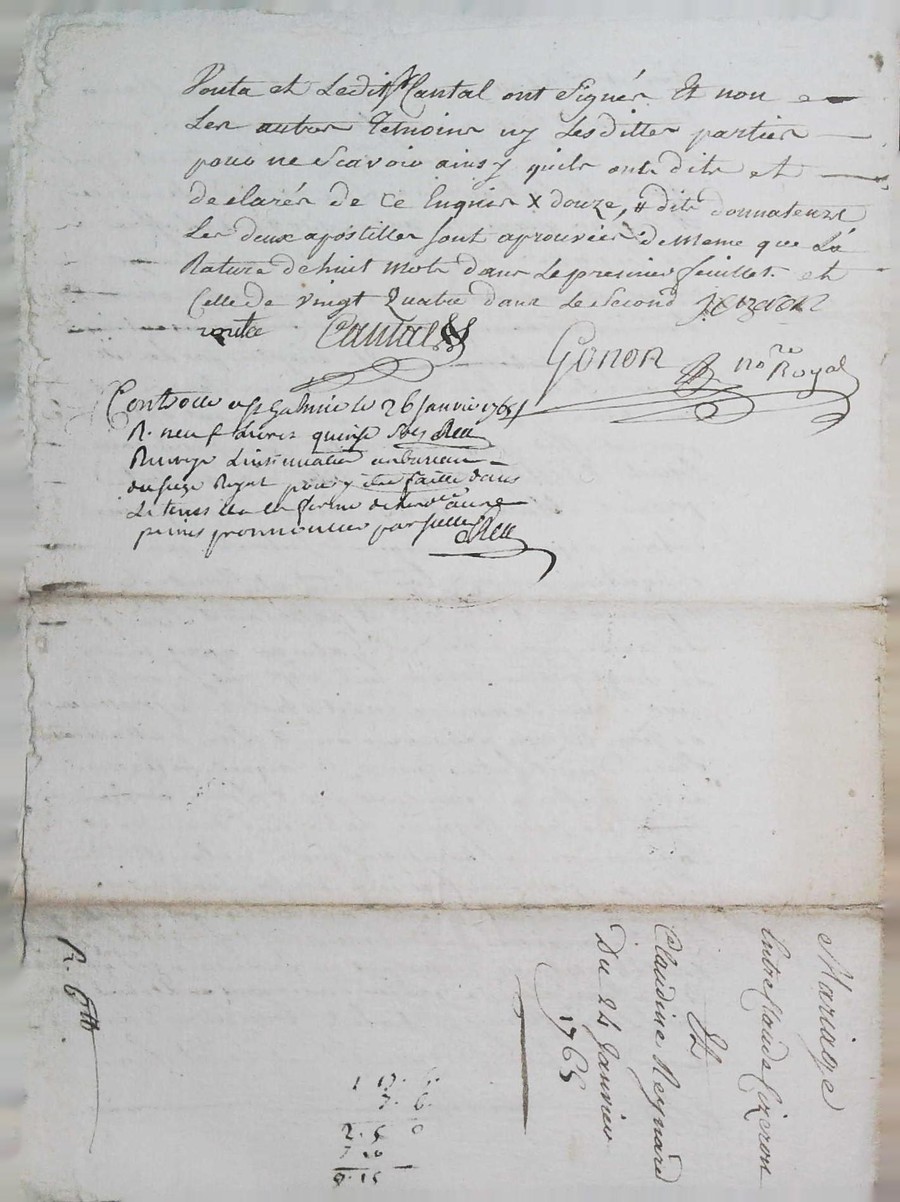 Pouta et Ledit Sr Cantal ont signés Et non
Les autres Temoins ny Lesdittes parties
pour ne Scavoir ainsy quils ont dits et
declarés de ce Enquis X douze, # dits donnateurs
Les deux apostilles sont aprouvées de Meme que La
Rature de huit mots dans Le premier feuillet et
Celle de vingt Quatre dans Le Second
Cantal
Gonon no.re Royal
Controllé a St Galmier le 26 Janvier 1765
R. neuf Livres quinze sols
Renvoyé L'insinuation au bureau
du siege Royal pour y etre faitte dans
Le tems
peines prononcées par
Mariage
Entre Claude Cizeron
Et
Claudine Reynard
Du 24 Janvier
1765